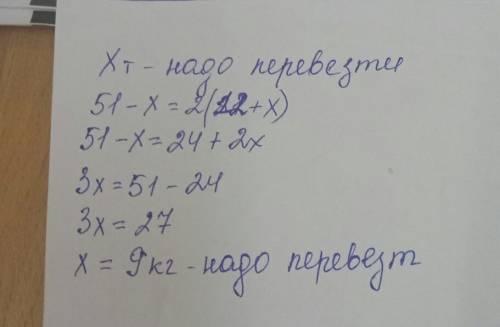 Xт - надо перевезти
51 - x = 2(12 + x)
51 - x = 24 + 2x
3x = 51 - 24
3x = 27
x = 9кг - надо перевезт